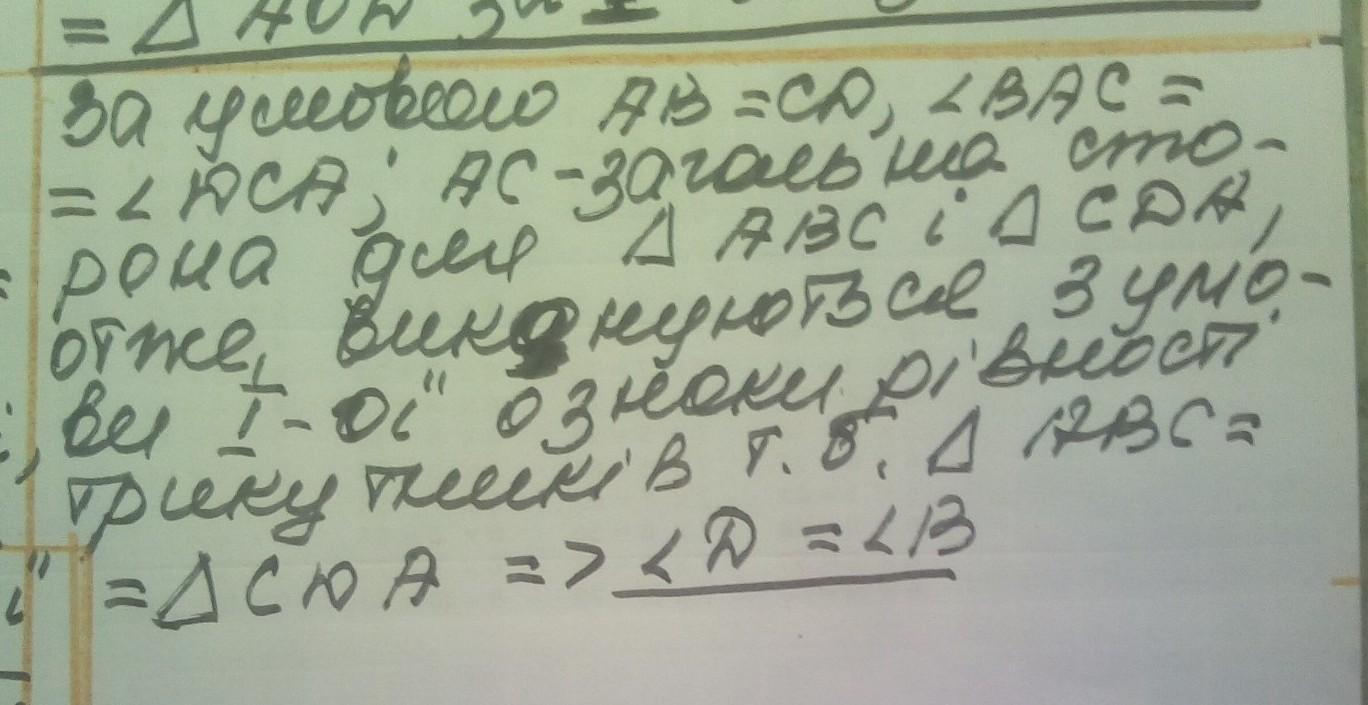 = Δ AOD за I
За умовою AB = CD, ∠BAC =
= ∠DCA; AC - загальна сто-
рона для Δ ABC і Δ CDA,
отже, виконуються 3 умо-
ви I-ої ознаки рівності
трикутників т. б. Δ ABC =
= Δ CDA => ∠D = ∠B